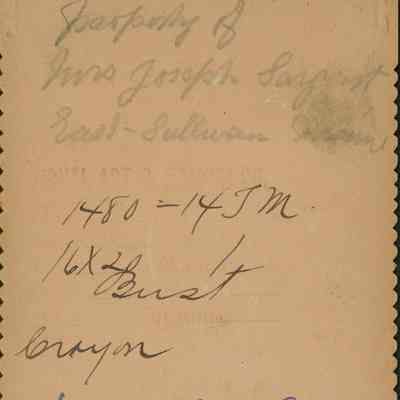 Property of
Mrs Joseph Sargent
East-Sullivan Maine
1480 = 14 J M.
16 X 20 /
Bust
Crayon